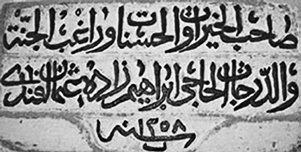 صاحب الخيرات والحسنات وراغب الجنة
والدرجات الحاجى ابراهيم زاده عثمان افندى
سنه ١٢٥٨